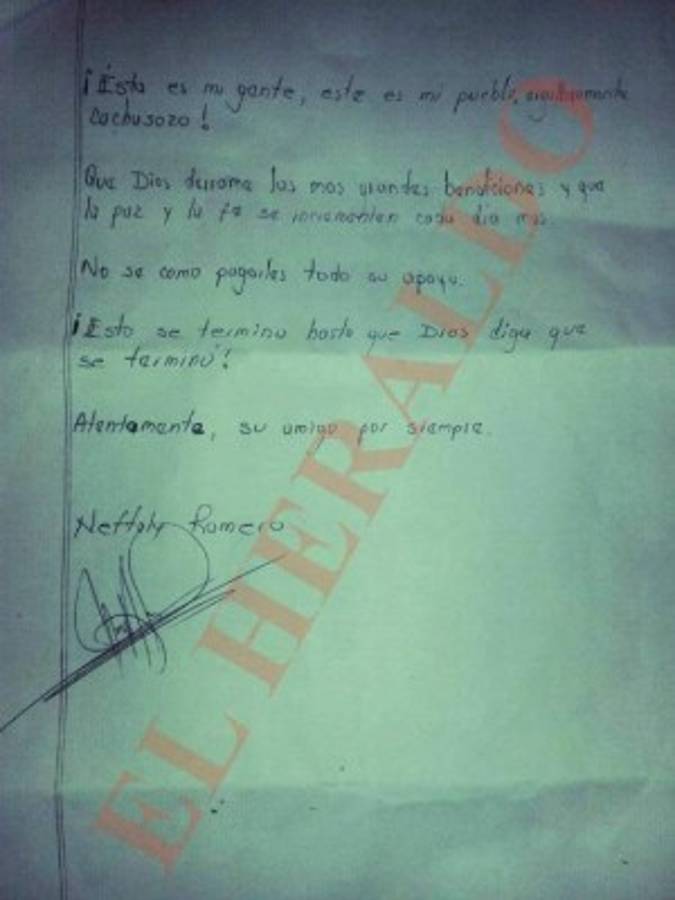 ¡Ésta es mi gente, este es mi pueblo, orgullosamente
cachusozo!
Que Dios derrame las mas grandes bendiciones y que
la paz y la fe se incrementen cada dia mas.
No se como pagarles todo su apoyo.
¡Esto se termina hasta que Dios diga que
se terminó!
Atentamente, su amigo por siempre.
Neftaly Romero
EL HERALDO